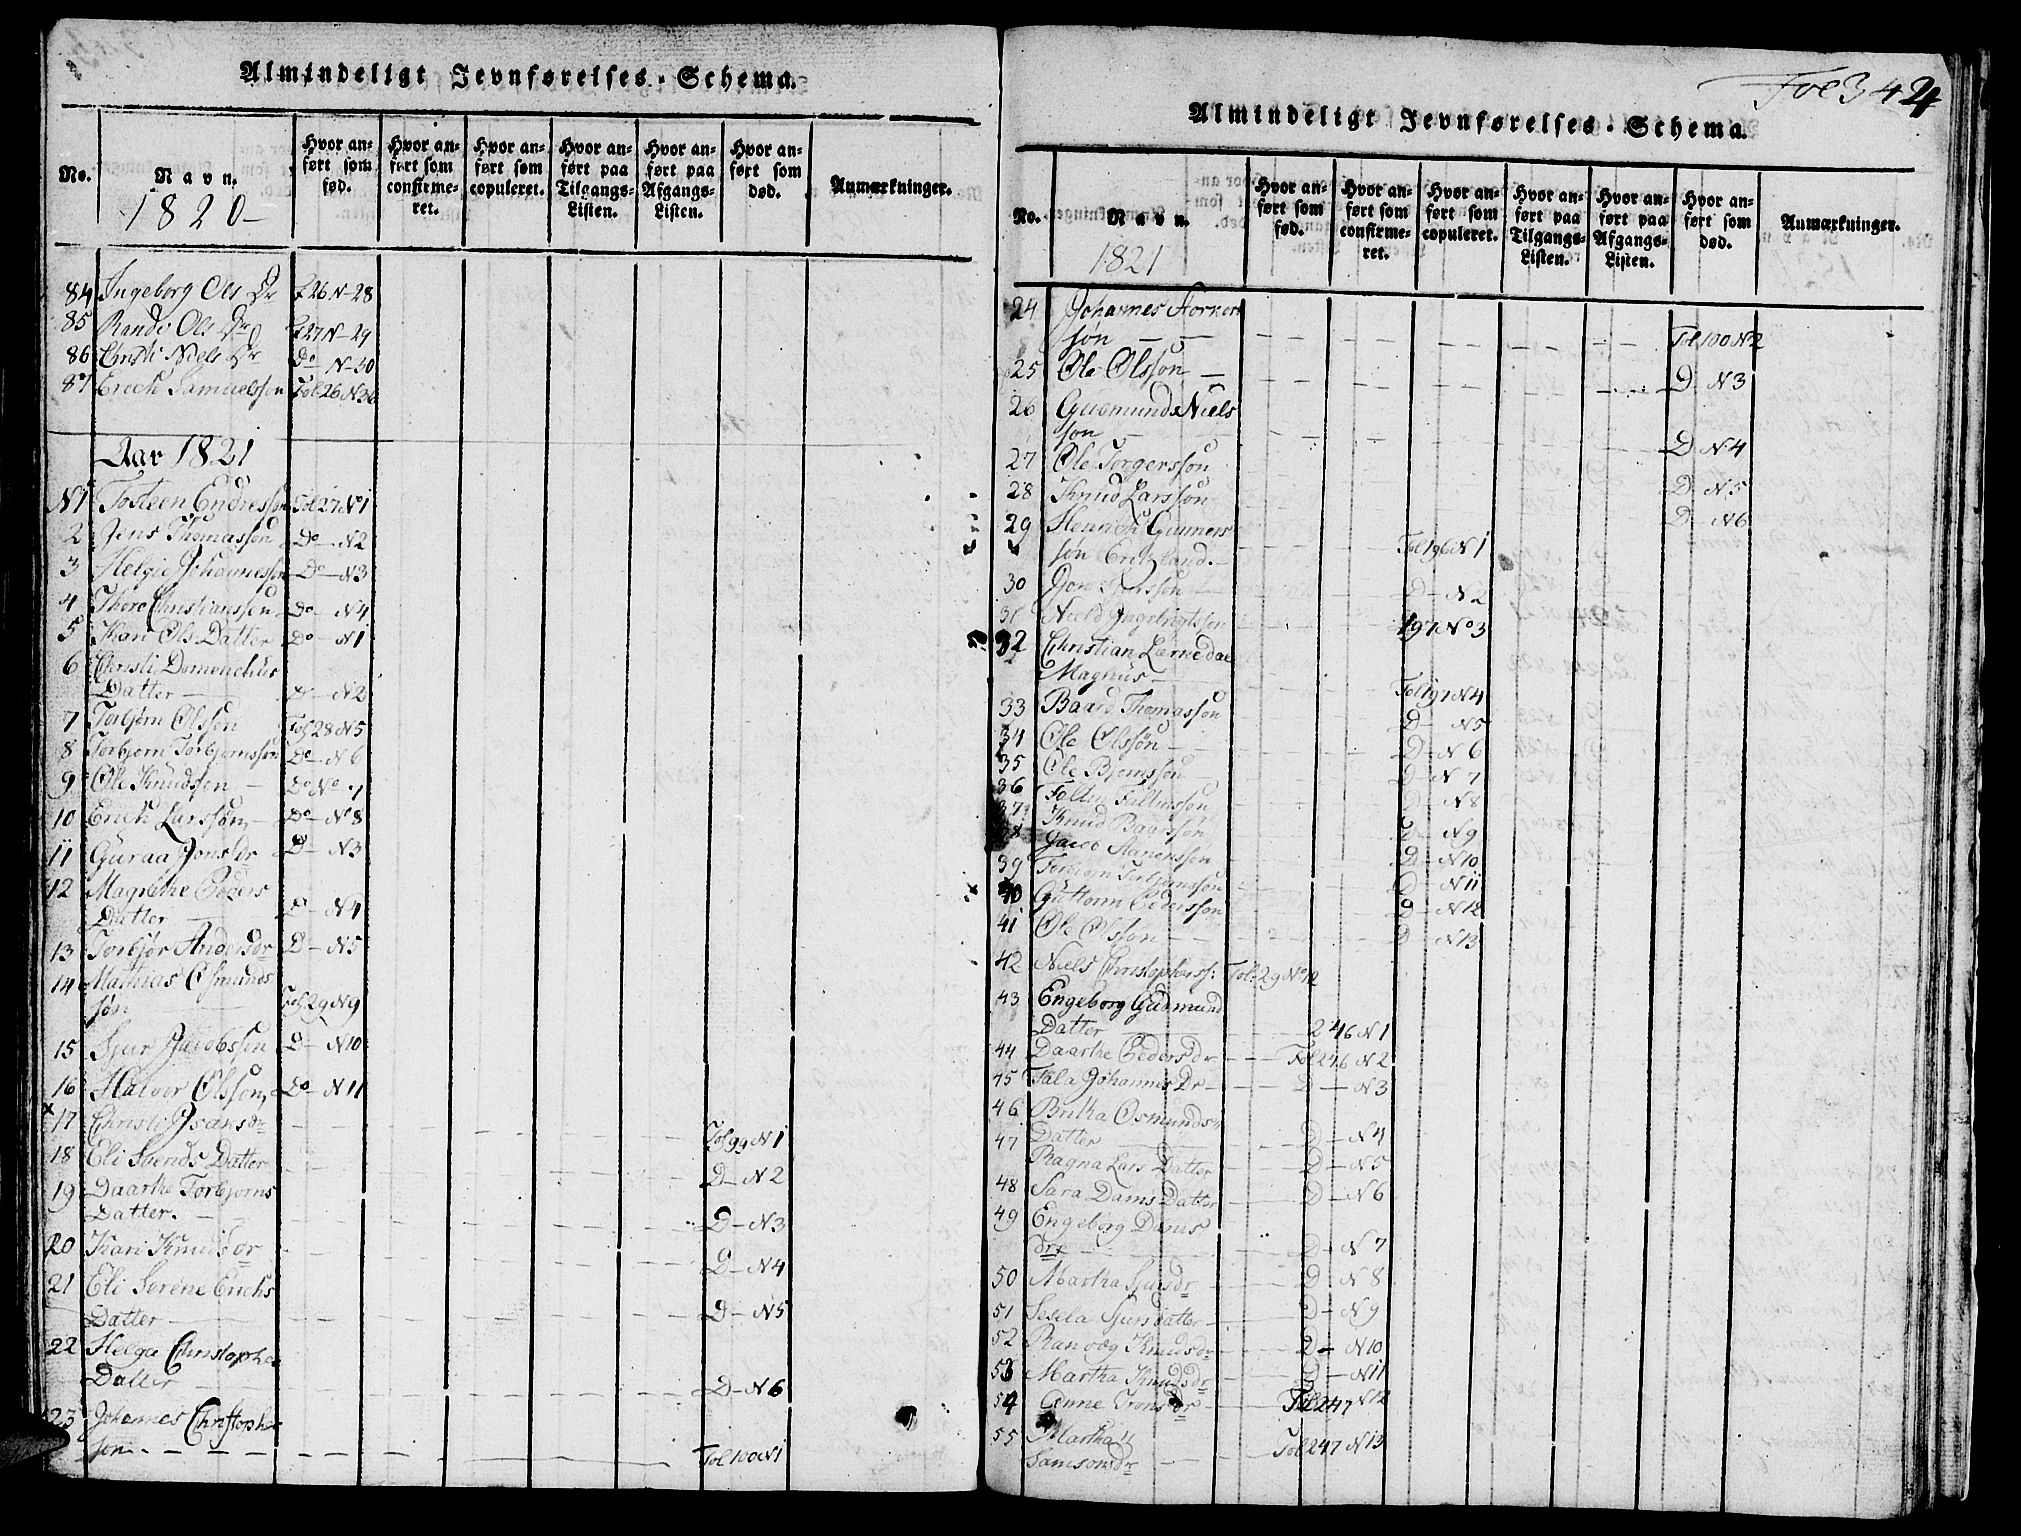 Almindeligt Jevnførelses-Schema.
No. Navn. Hvor anført som fød. Hvor anført som confirmeret. Hvor anført som copuleret. Hvor anført paa Tilgangs-Listen. Hvor anført paa Afgangs-Listen. Hvor anført som død. Anmærkninger.
1820-
84 Ingeborg Ols Dr F 26 N-28
85 Randi Ols Dr F 27 N-29
86 Christi Niels Dr Do N-30
87 Erich Samuelssøn Fol 26 N 36
Aar 1821
N1 Tosteen Endressøn Fol 27 No 1
2 Jens Thomassøn Do - N2
3 Helgie Johannessøn Do - N3
4 Thore Christianssøn Do N4
5 Kari Ols Datter Do - N1
6 Christi Domenchus
Datter - D - N2
7 Torbjørn Olssøn Fol 28 N5
8 Torbjørn Torbjørnssøn Do - N6
9 Ole Knudssøn - Do No 7
10 Erich Larssøn - Do - No 8
11 Guraa Jonsdr D - N3
12 Magrethe Peders
Datter D - N4
13 Torbjør Andersdr D - N5
14 Mathias Osmunds
søn Fol 29 N9
15 Sjur Jacobssøn D - N10
16 Halvor Olssøn Do - N11
17 Christi Isansdr Fol 99 N1
18 Eli Svends Datter D - N2
19 Daarthe Torbjørns
Datter. - D - N3
20 Kari Knudsdr D - N4
21 Eli Serene Erichs
Datter D - N5
22 Helga Christophe
Datter D - N6
23 Johannes Christophe
søn - Fol 100 N1
Fol 342
4
Almindeligt Jevnførelses-Schema.
No. Navn. Hvor anført som fød. Hvor anført som confirmeret. Hvor anført som copuleret. Hvor anført paa Tilgangs-Listen. Hvor anført paa Afgangs-Listen. Hvor anført som død. Anmærkninger.
1821
24 Johannes
søn - Fol 100 N2
25 Ole Olssøn - D N3
26 Niels
søn D N4
27 Ole Torgerssøn D N5
28 Knud Larssøn D N6
29 Henrich Gunners
søn Fol 196 N1
30 D - N2
31 Ingebrigtssøn 197 No 3
32 Christian Lærnedal
Magnus Fol 197 N4
33 Baard Thomassøn D N5
34 Ole Olssøn D - N6
35 Ole Bjørnssøn D - N7
36 D N8
37 Knud Baarssøn D N9
38 Jacob D - N10
39 Torbjørn Torbjørnssøn D - N11
40 Guttorm Pederssøn D - N12
41 Ole Olssøn D - N13
42 Niels Christophers: Fol: 29 No 12
43 Engeborg Gudmund
Datter 246 N1
44 Daarthe Peders dr - Fol 246 N2
45 Tala Johannes Dr - D - N3
46 Britha Osmunds
Datter D - N4
47 Ragna Lars Datter D - N5
48 Sara Dams Datter D - N6
49 Engeborg Dams
dr D N7
50 Martha Sjursdr D N8
51 Sesela Sjursdatter D - N9
52 Ranveg Knudsdr D - N10
53 Martha Knudsdr D - N11
54 Trons dr Fol 247 N12
55 Martha
Samsonsdr Fol 247 N13